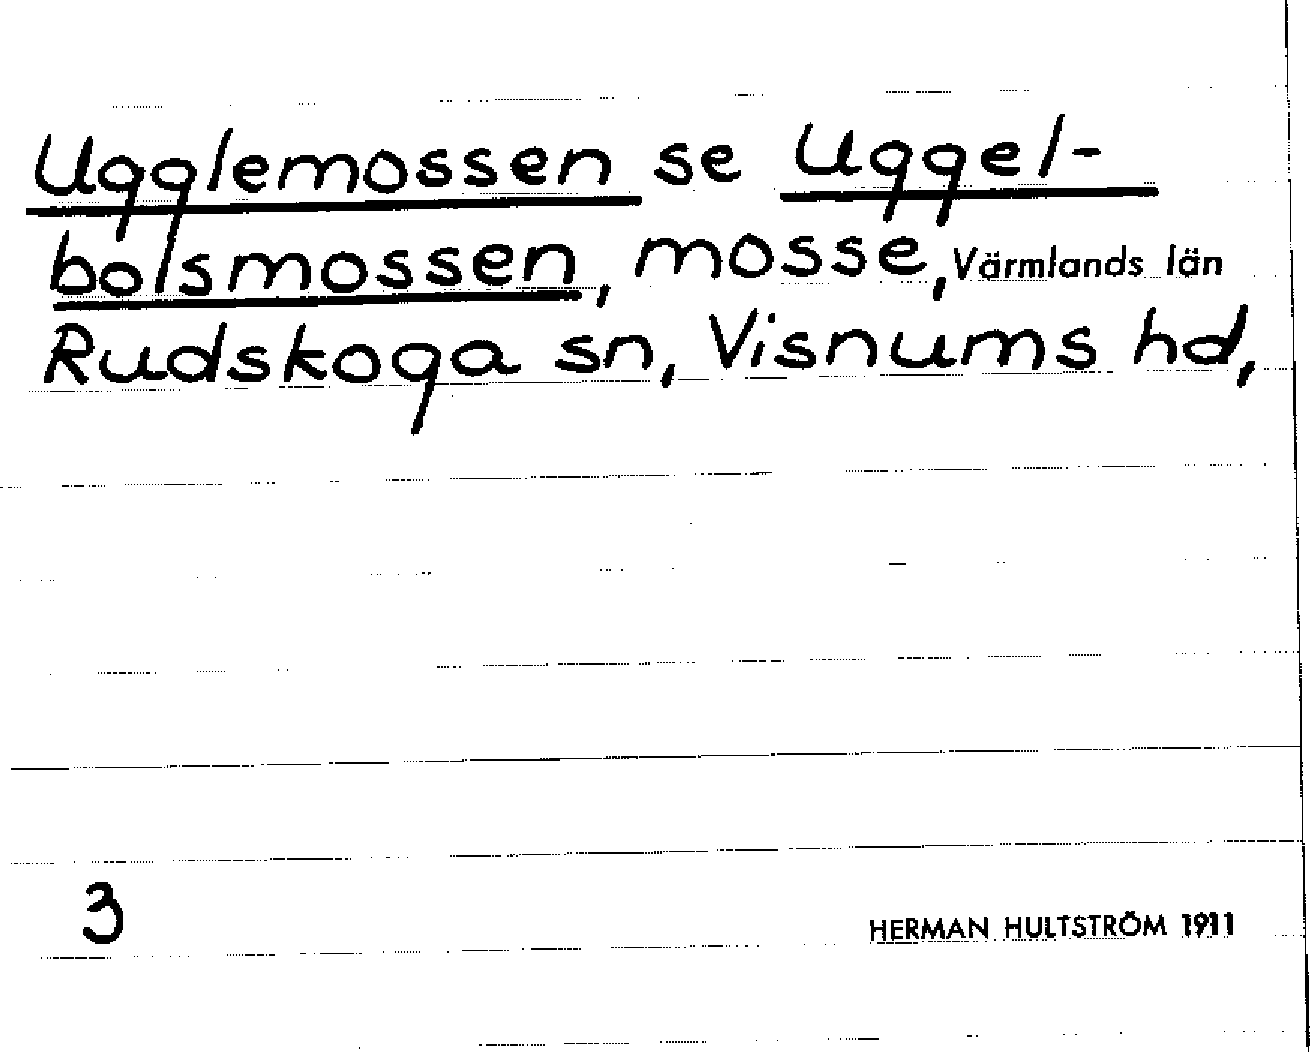 Ugglemossen se Uggel-
bolsmossen, mosse, Värmlands län
Rudskoga sn, Visnums hd,
3
HERMAN HULTSTRÖM 1911